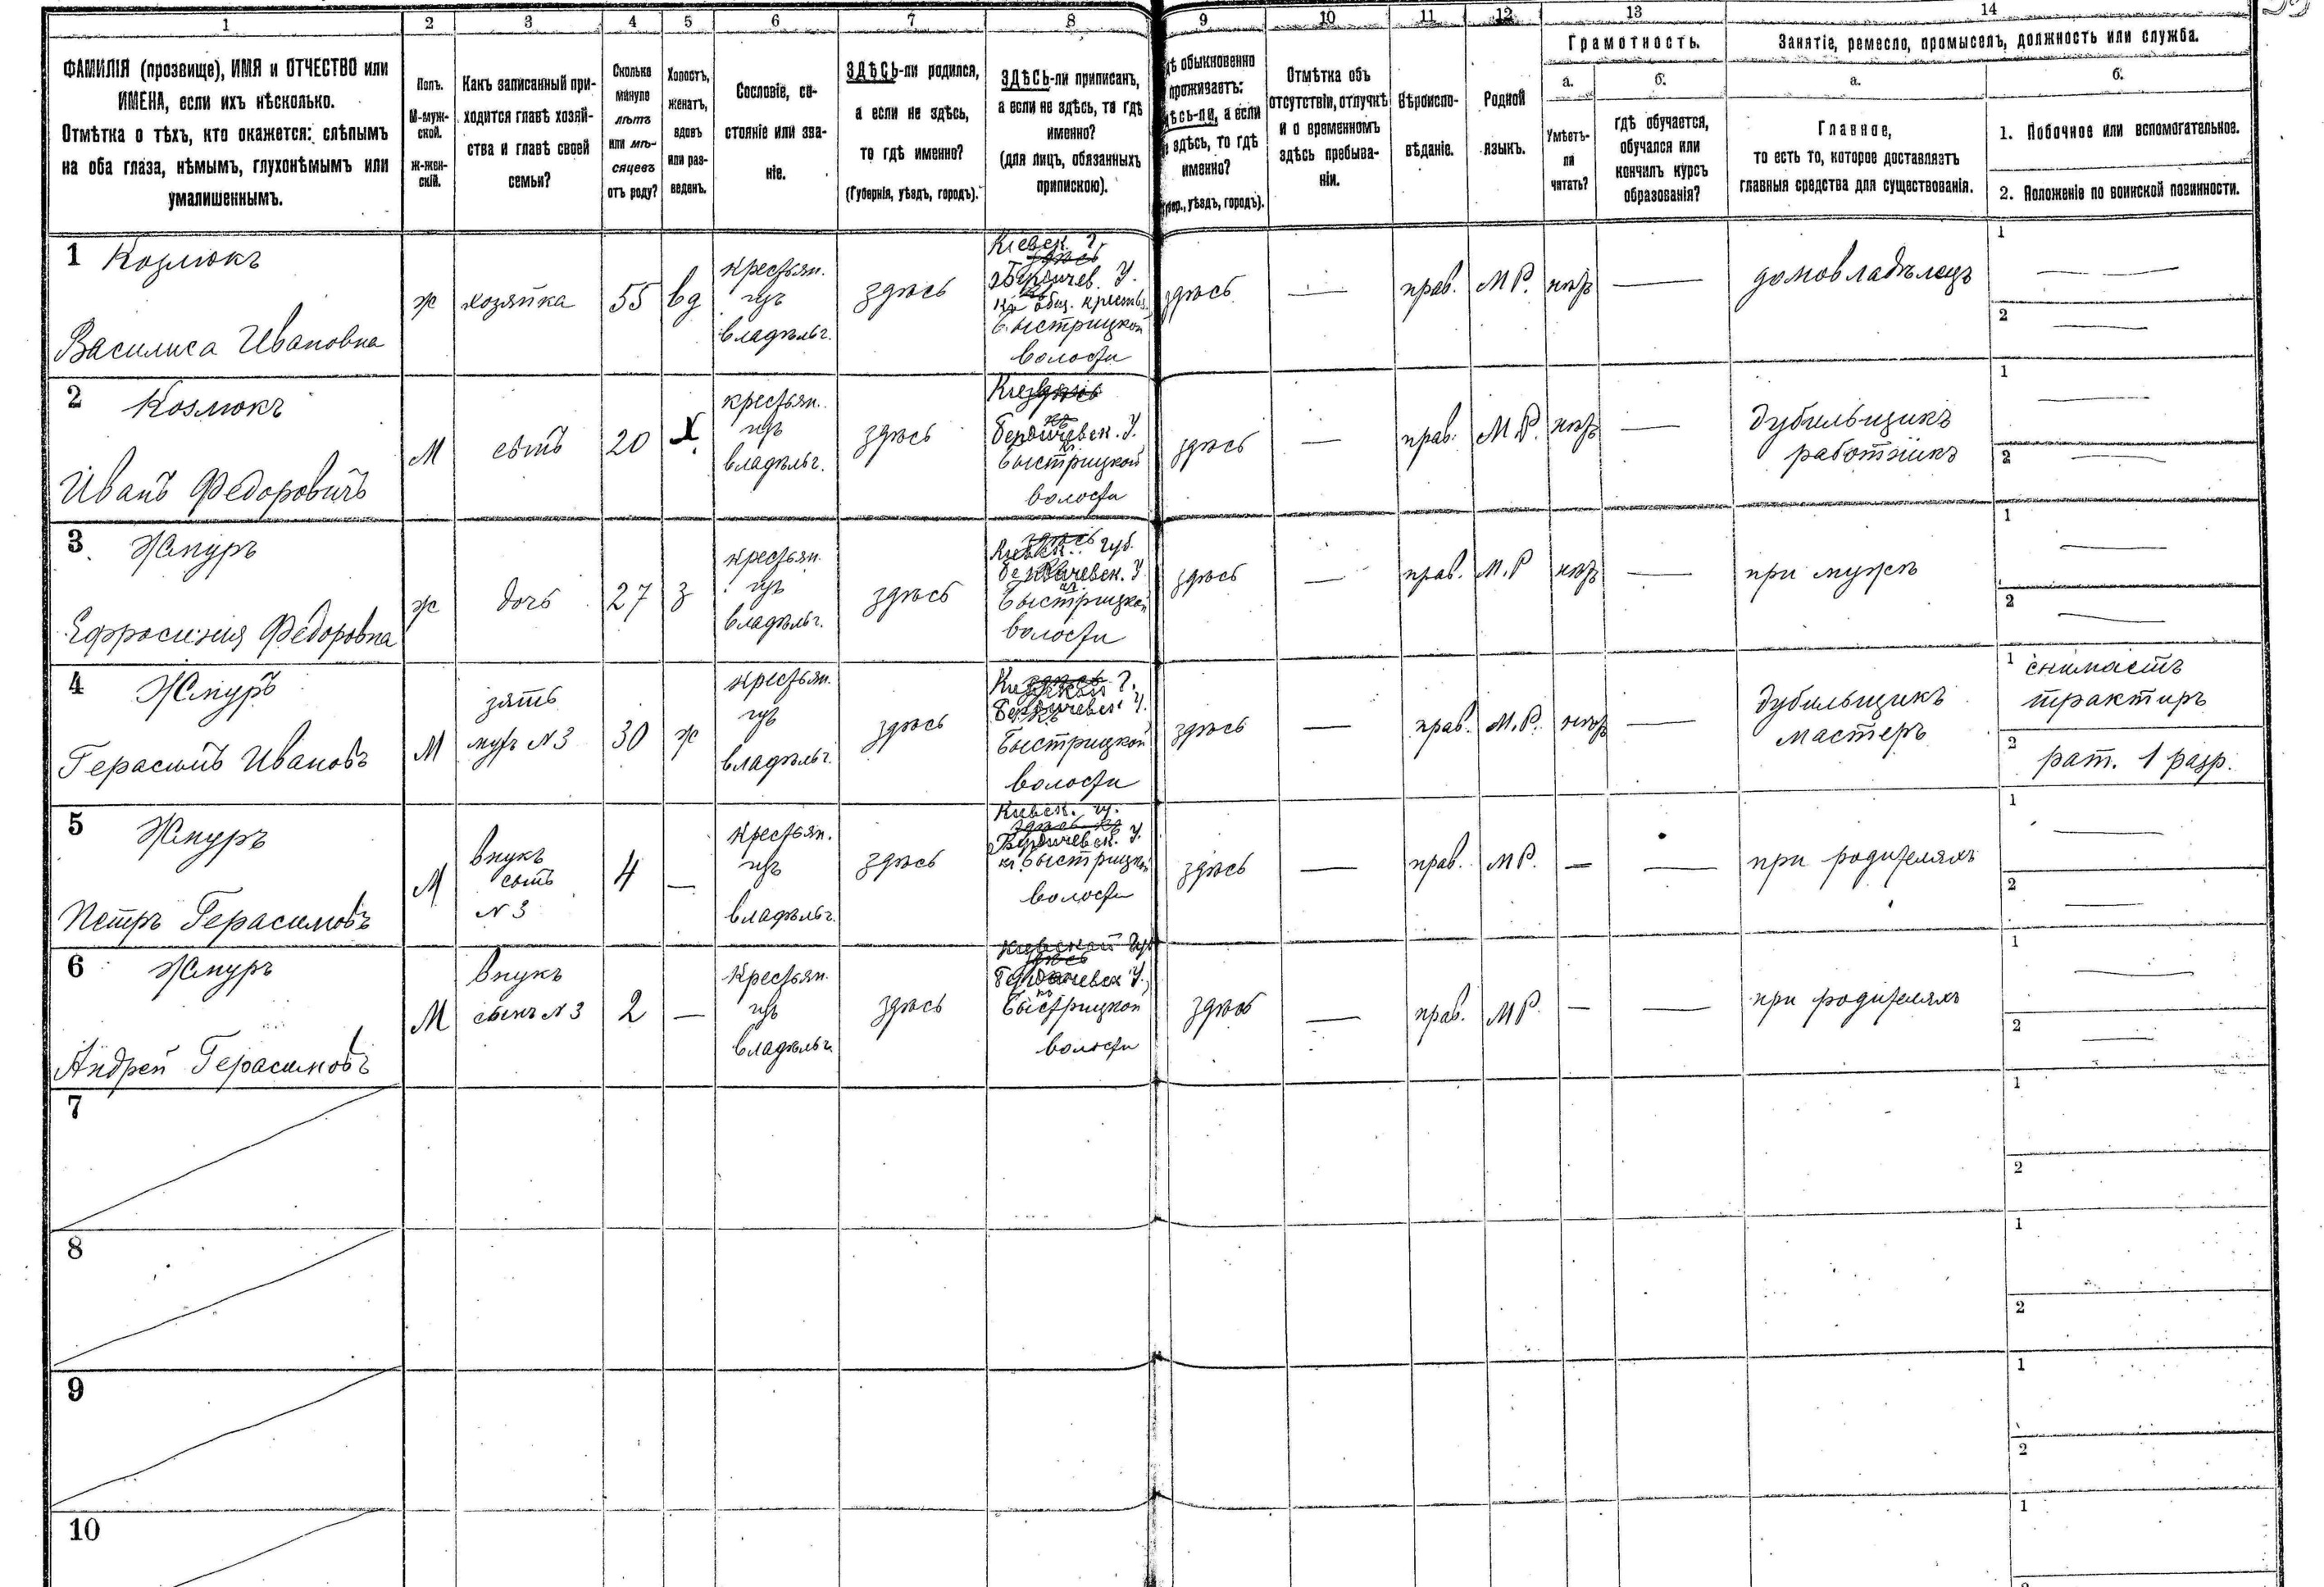 1 2 3 4 5 6 7 8 9 10 11 12 13 14
ФАМИЛІЯ (прозвище), ИМЯ и ОТЧЕСТВО или
ИМЕНА, если ихъ нѣсколько.
Отмѣтка о тѣхъ, кто окажется: слѣпымъ
на оба глаза, нѣмымъ, глухонѣмымъ или
умалишеннымъ.
Полъ.
М-муж-
ской.
ж-жен-
скій.
Какъ записанный при-
ходится главѣ хозяй-
ства и главѣ своей
семьи?
Сколько
минуло
лѣтъ
или мѣ-
сяцевъ
отъ роду?
Холостъ,
женатъ,
вдовъ
или раз-
веденъ.
Сословіе, со-
стояніе или зва-
ніе.
ЗДѢСЬ-ли родился,
а если не здѣсь,
то гдѣ именно?
(Губернія, уѣздъ, городъ).
ЗДѢСЬ-ли приписанъ,
а если не здѣсь, то гдѣ
именно?
(для лицъ, обязанныхъ
припискою).
обыкновенно
проживаетъ:
а если
здѣсь, то гдѣ
именно?
уѣздъ, городъ).
Отмѣтка объ
отсутствіи, отлучкѣ
и о временномъ
здѣсь пребыва-
ніи.
Вѣроиспо-
вѣданіе.
Родной
языкъ.
Грамотность.
а.
Умѣетъ-
ли
читать?
б.
гдѣ обучается,
обучался или
кончилъ курсъ
образованія?
Занятіе, ремесло, промыселъ, должность или служба.
а.
Главное,
то есть то, которое доставляетъ
главныя средства для существованія.
б.
1. Побочное или вспомогательное.
2. Положеніе по воинской повинности.
1 Козлюкъ
Василиса Ивановна
ж
хозяйка
55
вд
крестьян.
изъ
владѣльч.
здѣсь
Кіевск. г.
Бердичев. У.
Быстрицкой
волости
здѣсь
—
прав.
М Р.
нѣтъ
—
домовладѣлецъ
1 — —
2 —
2 Козлюкъ
Иванъ Федоровичъ
М
сынъ
20
Х.
крестьян.
изъ
владѣльч.
здѣсь
Бердичевск. У.
Быстрицкой
волости
здѣсь
—
прав.
М.Р.
нѣтъ
—
дубильщикъ
работникъ
1 —
2 —
3 Жмуръ
Ефросинія Федоровна
ж
дочь
27
з
крестьян.
изъ
владѣльч.
здѣсь
здѣсь
Кіевск. Губ.
Бердичевск. У
Быстрицкой
волости
здѣсь
—
прав.
М.Р
нѣтъ
—
при мужѣ
1 —
2 —
4 Жмуръ
Герасимъ Ивановъ
М
зять
мужъ N 3
30
ж
крестьян.
изъ
владѣльч.
здѣсь
здѣсь
Бердичевск У.
Быстрицкой
волости
здѣсь
—
прав.
М.Р.
нѣтъ
—
дубильщикъ
мастеръ
1 снимаетъ
трактиръ
2 рат. 1 разр.
5 Жмуръ
Петръ Герасимовъ
М
внукъ
сынъ
N 3
4
—
Крестьян.
изъ
владѣльч.
здѣсь
Кіевск. гу.
Бердичевск. У.
Быстрицкой
волости
здѣсь
—
прав.
М Р.
—
—
при родителяхъ
1 —
2 —
6 Жмуръ
Андрей Герасимовъ
М
внукъ
сынъ N 3
2
—
Крестьян.
изъ
владѣльч.
здѣсь
Кіевской Губ
здѣсь
Бердичевск У.
Быстрицкой
волости
здѣсь
—
прав.
М Р.
—
—
при родителяхъ
1 —
2 —
7
1
2
8
1
2
9
1
2
10
1